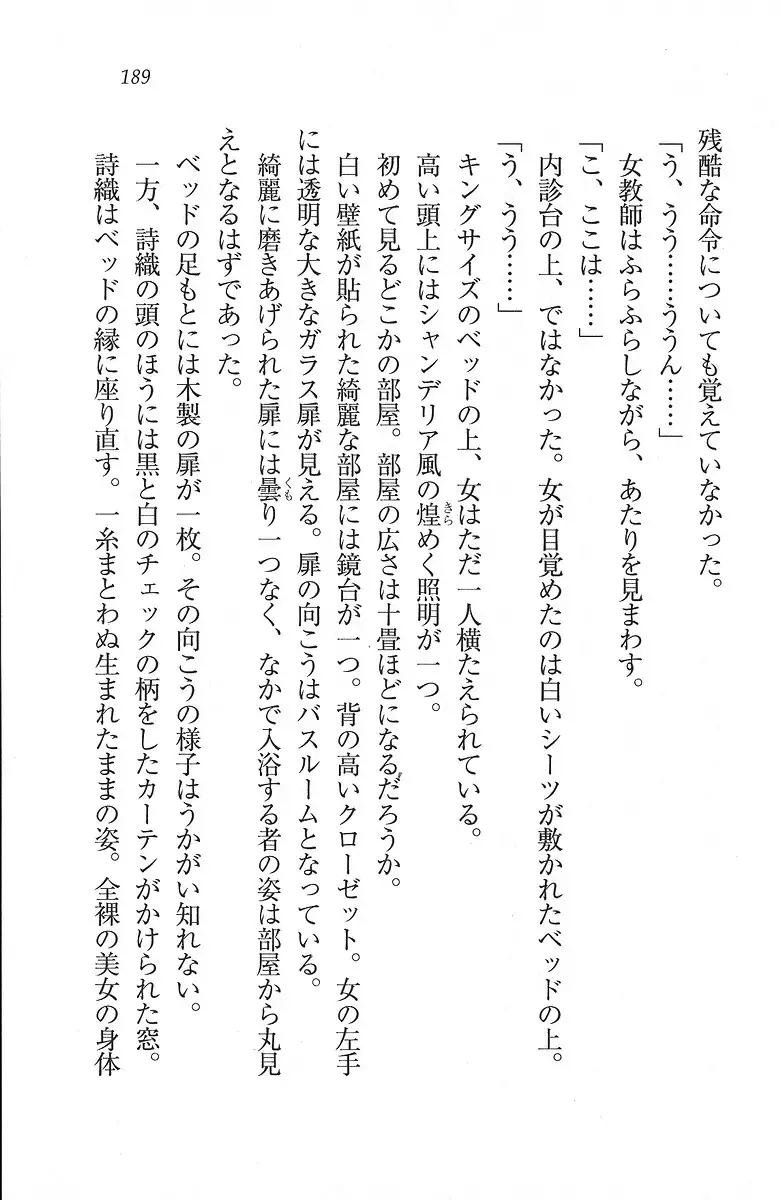 189
残酷な命令についても覚えていなかった。
「う、うう……ううん……」
女教師はふらふらしながら、あたりを見まわす。
「こ、ここは……」
内診台の上、ではなかった。女が目覚めたのは白いシーツが敷かれたベッドの上。
「う、うう……」
キングサイズのベッドの上、女はただ一人横たえられている。
高い頭上にはシャンデリア風の煌めく照明が一つ。
きら
初めて見るどこかの部屋。部屋の広さは十畳ほどになるだろうか。
白い壁紙が貼られた綺麗な部屋には鏡台が一つ。背の高いクローゼット。女の左手
には透明な大きなガラス扉が見える。扉の向こうはバスルームとなっている。
綺麗に磨きあげられた扉には曇り一つなく、なかで入浴する者の姿は部屋から丸見
くも
えとなるはずであった。
ベッドの足もとには木製の扉が一枚。その向こうの様子はうかがい知れない。
一方、詩織の頭のほうには黒と白のチェックの柄をしたカーテンがかけられた窓。
詩織はベッドの縁に座り直す。一糸まとわぬ生まれたままの姿。全裸の美女の身体